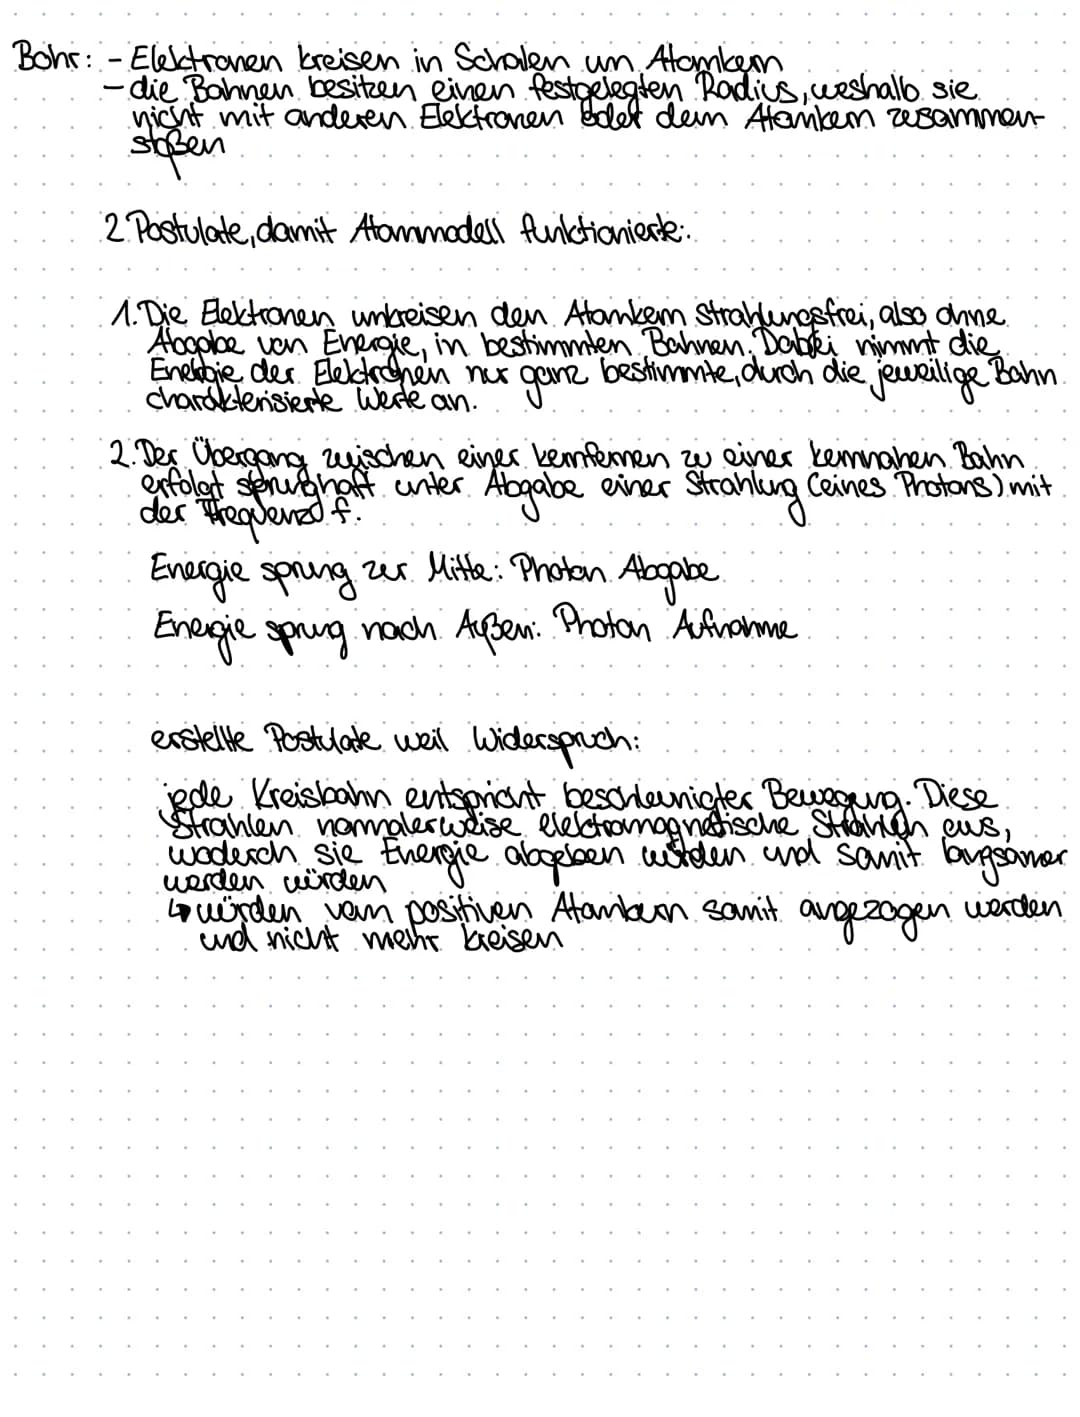 Bohr: - Elektronen kreisen in Schalen um Atomkern
- die Bahnen besitzen einen festgelegten Radius, weshalb sie
nicht mit anderen Elektronen oder dem Atomkern zusammen-
stoßen
2 Postulate, damit Atommodell funktionierte:
1. Die Elektronen umkreisen den Atomkern strahlungsfrei, also ohne
Abgabe von Energie, in bestimmten Bahnen. Dabei nimmt die
Energie der Elektronen nur ganz bestimmte, durch die jeweilige Bahn
charakterisierte Werte an.
2. Der Übergang zwischen einer kernfernen zu einer kernnahen Bahn
erfolgt sprunghaft unter Abgabe einer Strahlung (eines Photons) mit
der Frequenz f.
Energie sprung zur Mitte: Photon Abgabe
Energie sprung nach Außen: Photon Aufnahme
erstellte Postulate weil Widerspruch:
jede Kreisbahn entspricht beschleunigter Bewegung. Diese
Strahlen normalerweise elektromagnetische Strahlen aus,
wodurch sie Energie abgeben würden und somit langsamer
werden würden
↳ würden vom positiven Atomkern somit angezogen werden
und nicht mehr kreisen